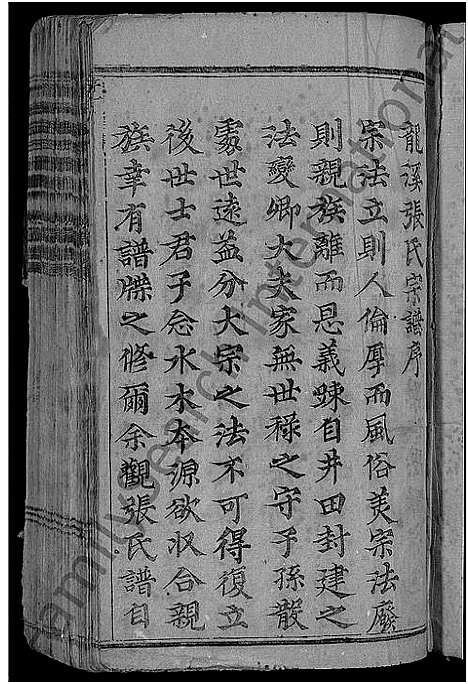 龍溪張氏宗譜序
宗法立則人倫厚而風俗美宗法廢
則親族離而恩義踈自井田封建之
法變卿大夫家無世祿之守子孫散
處世遠益分大宗之法不可得復立
後世士君子念水木本源欲収合親
族幸有譜牒之修爾余觀張氏譜自
familysearch international